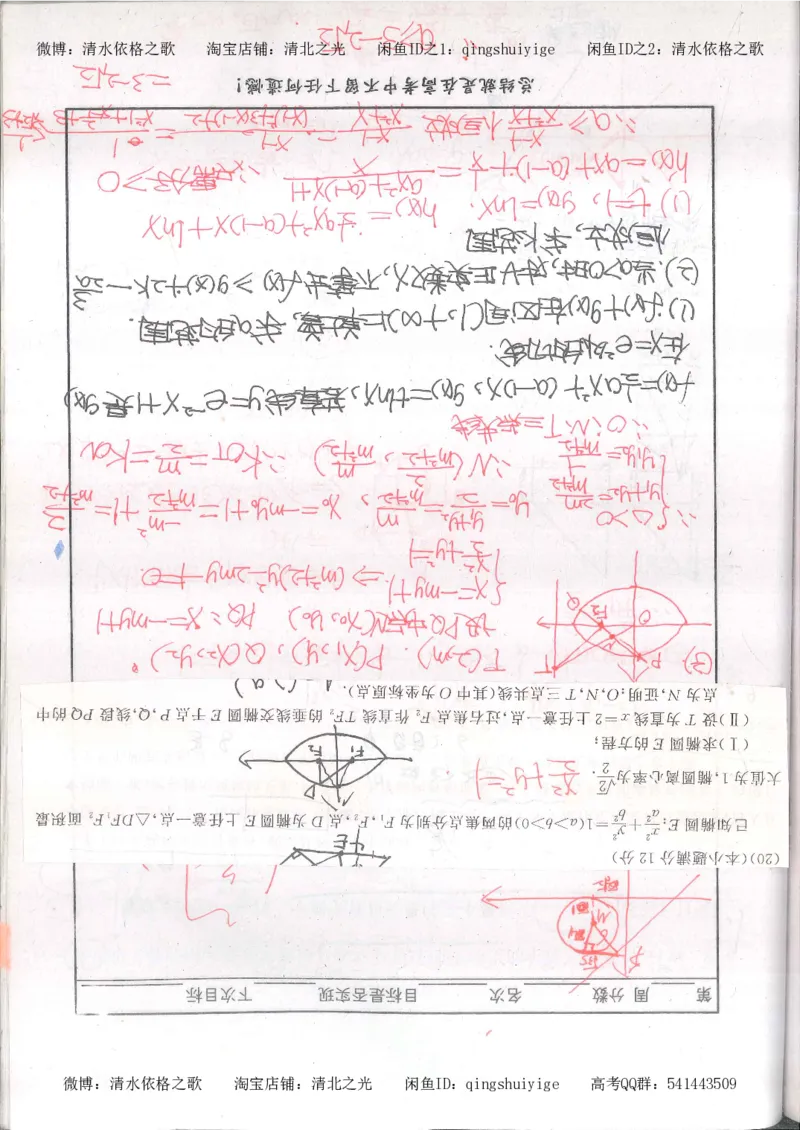 微博：清水依格之歌 淘宝店铺：清北之光 闲鱼ID之1：qingshuiyige 闲鱼ID之2：清水依格之歌
第 周 分数 名次 目标是否实现 下次目标
(20)(本小题满分 12 分)
已知椭圆 E: x²/a² + y²/b² =1(a>b>0)的两焦点分别为 F₁,F₂,点 D 为椭圆 E 上任意一点,△DF₁F₂ 面积最
大值为 1,椭圆离心率为 √2/2. x²/2 + y² = 1
(Ⅰ)求椭圆 E 的方程;
(Ⅱ)设 T 为直线 x=2 上任意一点,过右焦点 F₂ 作直线 TF₂ 的垂线交椭圆 E 于点 P,Q,线段 PQ 的中
点为 N,证明:O,N,T 三点共线(其中 O 为坐标原点).
(2) T(2,m). P(x₁,y₁), Q(x₂,y₂)
设PQ中点N(x₀,y₀) PQ: x=-my+1
{ x=-my+1
x²/2+y²=1 ⇒ (m²+2)y²-2my-1=0.
∴ { Δ>0
y₁+y₂=2m/(m²+2)
y₁y₂=-1/(m²+2)
y₀=(y₁+y₂)/2=m/(m²+2), x₀=-my₀+1=-m²/(m²+2)+1=2/(m²+2)
∴N(2/(m²+2), m/(m²+2)) ∴k_OT=m/2=k_ON
∴O、N、T三点共线
f(x)=½ax²+(a-1)x, g(x)=tlnx,若直线y=e⁻²x+1是g(x)
在x=e²处的切线.
(1) f(x)+g(x)在区间(1,+∞)上单调,求a的范围.
(2)当a>0时,对∀正实数x,不等式f(x)≥g(x)+2k-3/2a
恒成立,求k范围
(1) t=1, g(x)=lnx. h(x)=½ax²+(a-1)x+lnx
h'(x)=ax+(a-1)+1/x=(ax²+(a-1)x+1)/x
∴a≥(x-1)/(x²+x)恒成立
=3-2√2
a≥3-2√2
总结就是在高考中不留下任何遗憾!
微博：清水依格之歌 淘宝店铺：清北之光 闲鱼ID：qingshuiyige 高考QQ群：541443509